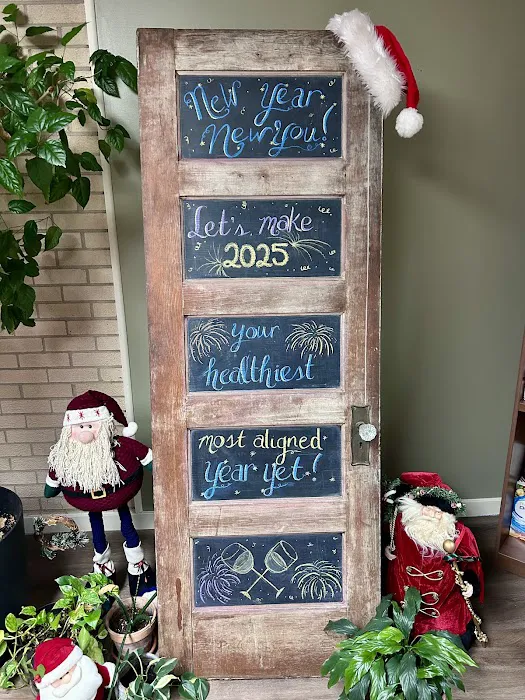 New Year
New You!
Let's make
2025
your
healthiest
most aligned
year yet!